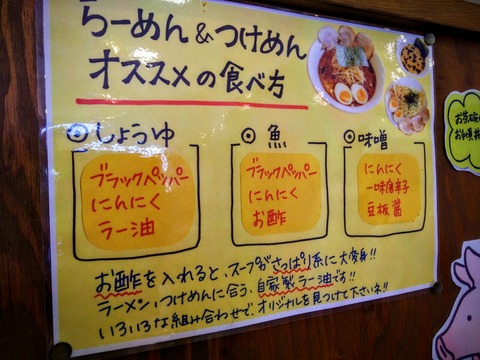 らーめん&つけめん
オススメの食べ方
しょうゆ
ブラックペッパー
にんにく
ラー油
魚
ブラックペッパー
にんにく
お酢
味噌
にんにく
一味唐辛子
豆板醤
お酢を入れると、スープがさっぱり系に大変身!!
ラーメン、つけめんに合う、自家製ラー油です!!
いろいろな組み合わせで、オリジナルを見つけて下さいネ!!